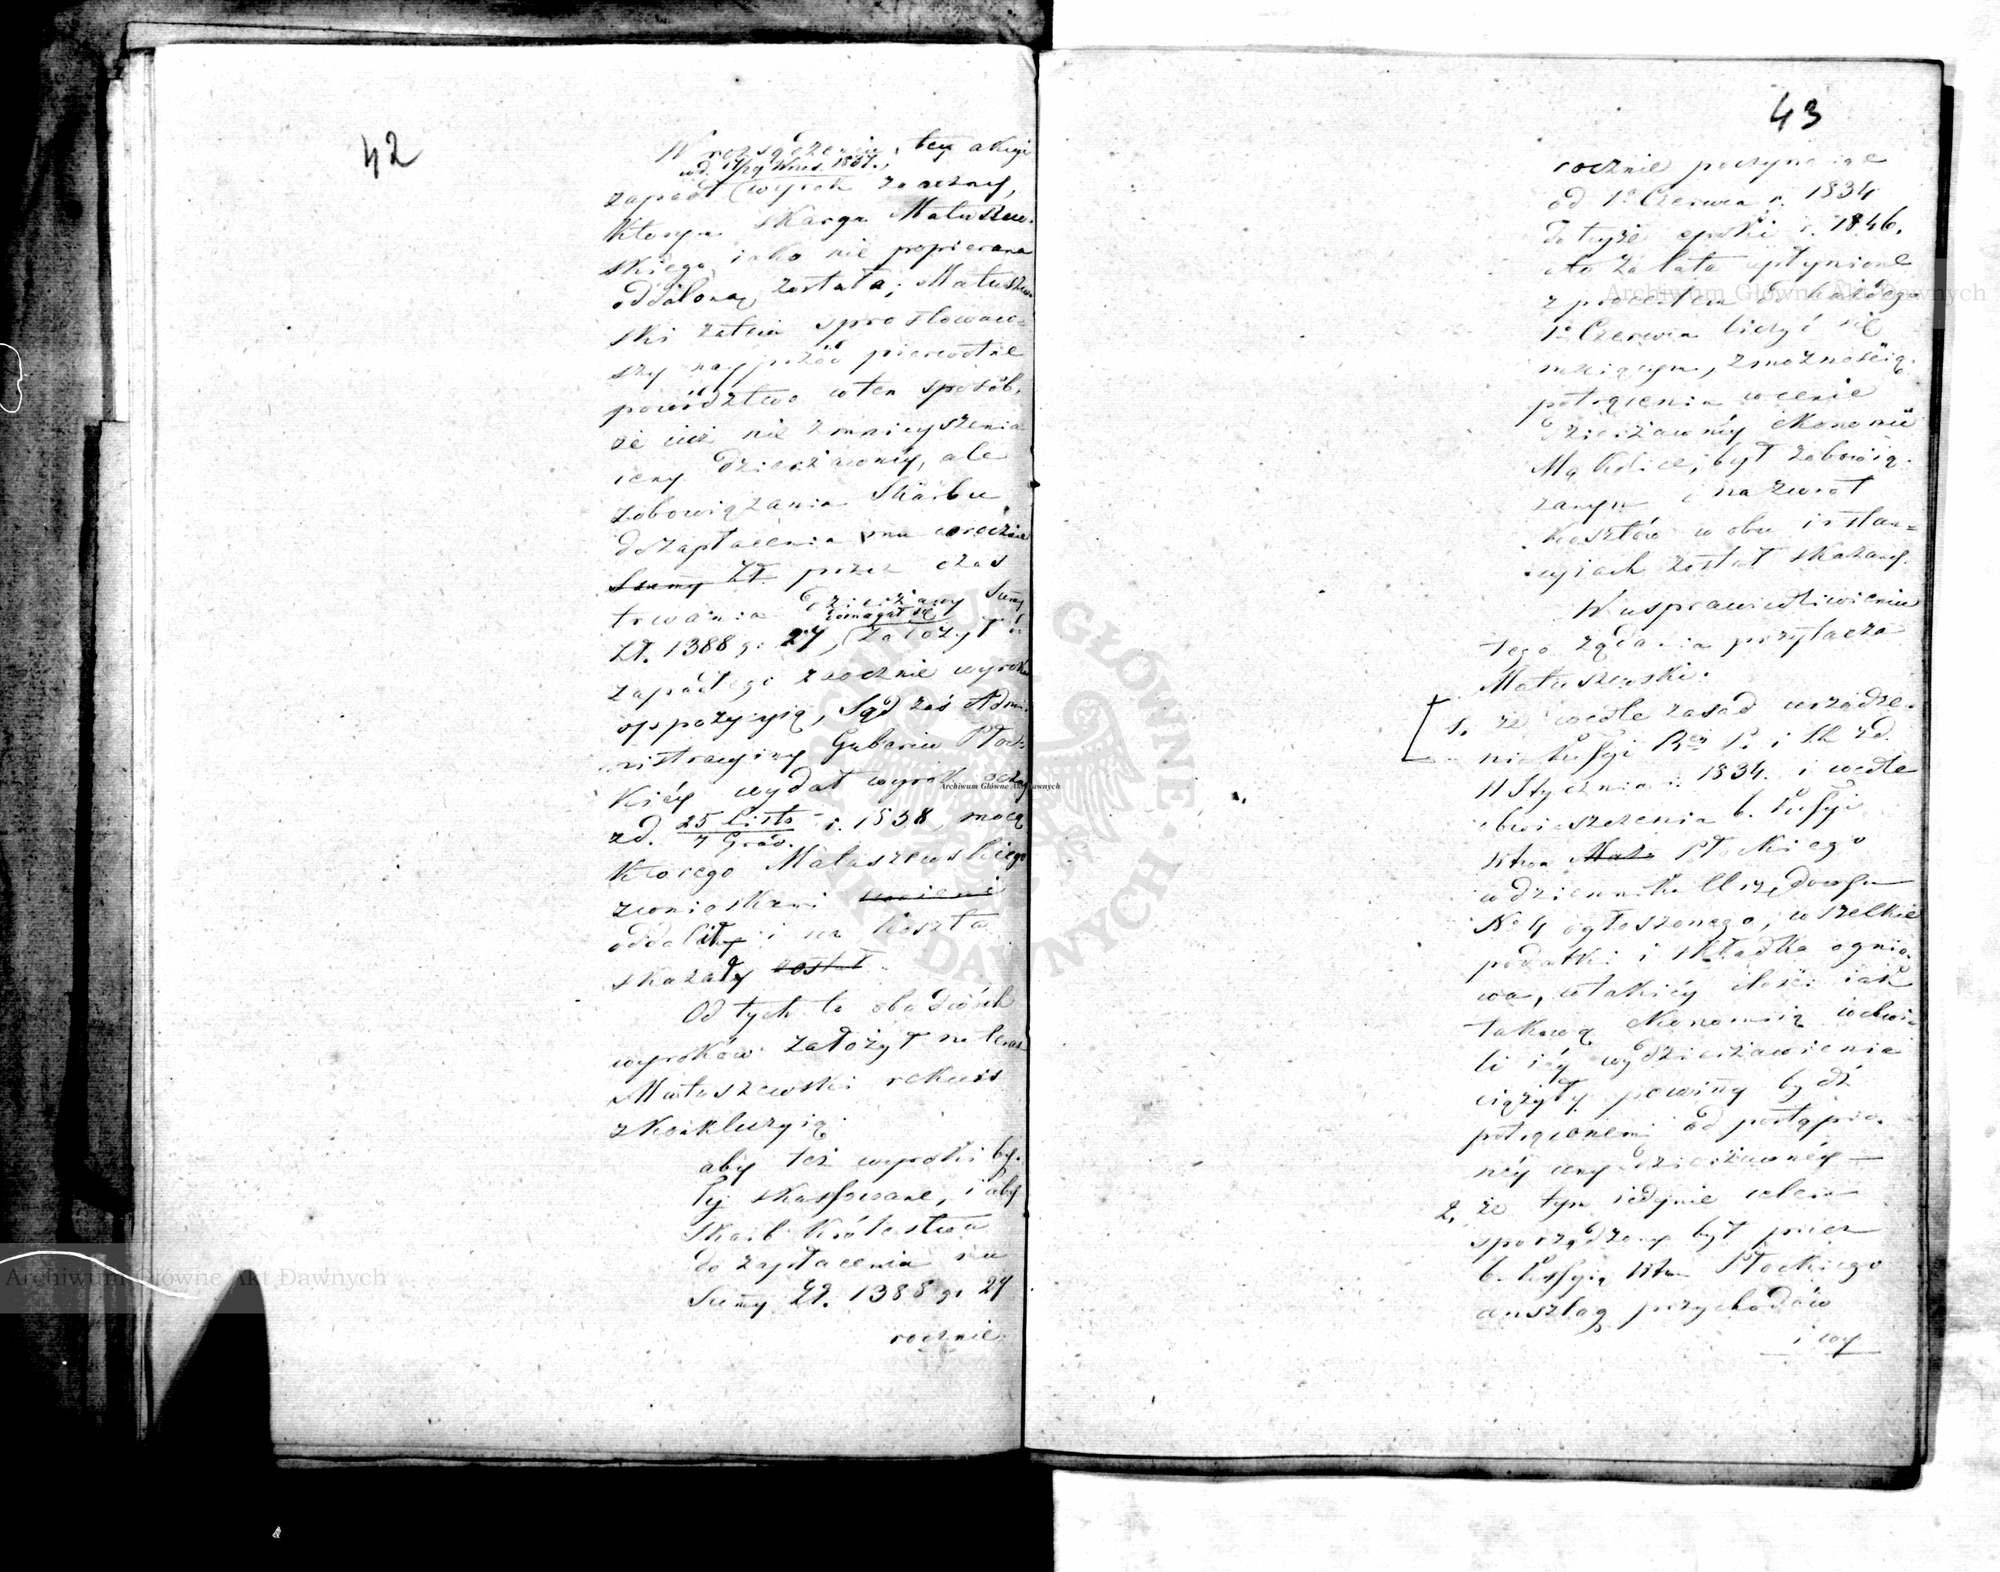 42
W rozsądzeniu tey akcyi
w d. 17/29 Wrześ. 1837.
zapadł wyrok zaoczny,
którym skarga Matuszew-
skiego, iako nie popierana
oddaloną została; Matuszew-
ski zatem sprostowaw-
szy naypród pierwotne
powództwo w ten sposób,
że iuż nie zmnieyszenia
ceny dzierżawnéy, ale
zobowiązania Skarbu
do zapłacenia mu corocznie
Summy Zł. przez czas
trwania dzierżawy Summy
domagał się
Zł. 1388 gr 27, założył od
zapadłego zaocznie wyroku
oppozycyią, Sąd zaś Admi-
nistracyiny Gubernii Płoc-
kiéy wydał wyrok oczny
z d. 25 Listo / 7 Grud. r. 1838, mocą
którego Matuszewskiego
z wnioskami
oddalił i na koszta
skazał został
Od tych to obudwóch
wyroków założył nateraz
Matuszewski rekurs
z konkluzyią
aby też wyroki by-
ły skassowane, i aby
Skarb Królestwa
do zapłacenia mu
Summy Zł. 1388 gr 27
rocznie
43
rocznie poczynaiąc
od 1o Czerwca r. 1834
do teyże epoki r. 1846.
a to za lata upłynione
z procentem od każdego
1o Czerwca liczyć się
maiącym, z możnością
potrącenia w cenie
dzierżawnéy ekonomii
Mąkolice, był zobowią-
zanym i na zwrot
kosztów w obu instan-
cyiach został skazany.
W usprawiedliwieniu
tego żądania przytacza
Matuszewski.
1. że wedle zasad urządze-
nia Kommssyi Rząd. P. i Sk z d.
11 Stycznia r. 1834. i wedle
obwieszczenia b. Kommssyi
Wtwa Płockiego
w dzienniku Urzędowym
No 4 ogłoszonego, wszelkie
podatki i składka ognio-
wa, w takiéy ilości iak
takową ekonomią w chwi-
li iéy wydzierżawienia
ciążyły powinny bydź
potrąconemi od postąpio-
néy ceny dzierżawnéy —
2. że tym iedynie celem
sporządzony był przez
b. Kommssyią Wtwa Płockiego
anszlag przychodów
i wy
Archiwum Główne Akt Dawnych
Archiwum Główne Akt Dawnych
Archiwum Główne Akt Dawnych
ARCHIWUM GŁÓWNE AKT DAWNYCH